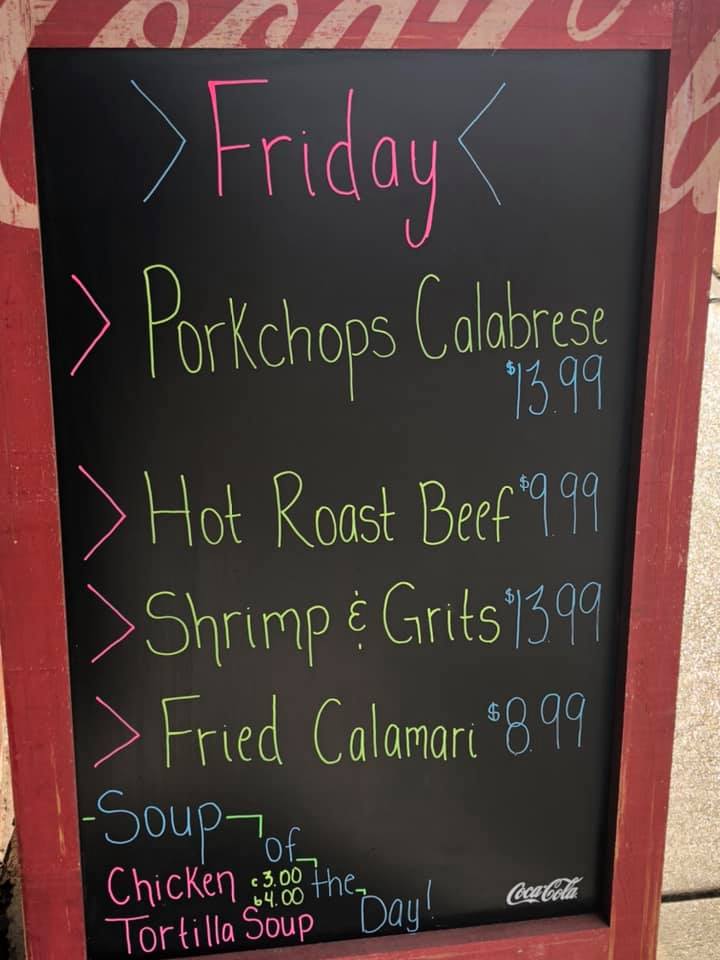 Friday
> Porkchops Calabrese
$13.99
> Hot Roast Beef $9.99
> Shrimp & Grits $13.99
> Fried Calamari $8.99
-Soup
of
the
Day!
Chicken c 3.00
b 4.00
Tortilla Soup
Coca-Cola